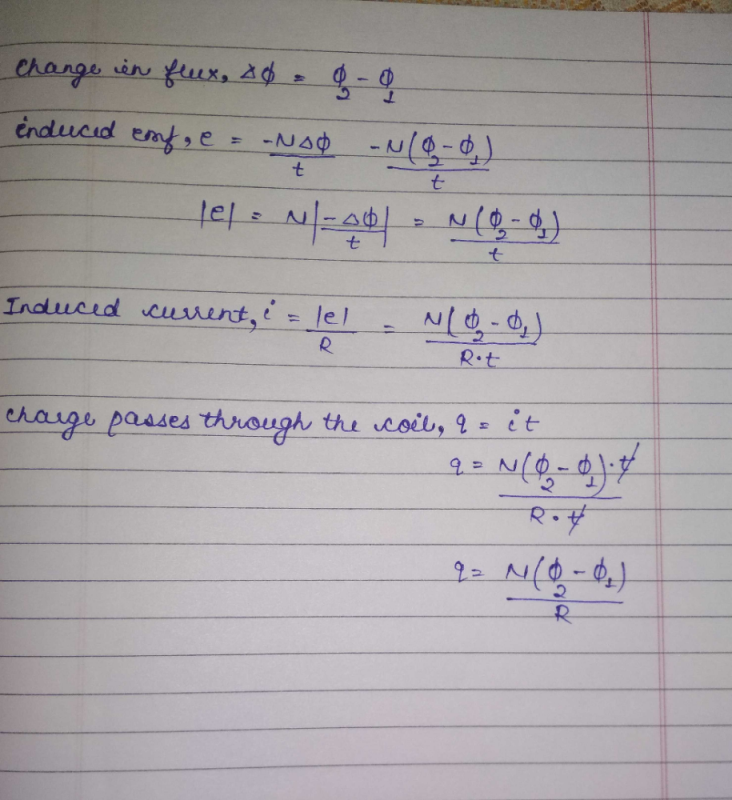 Change in flux, Δϕ = ϕ₂ - ϕ₁
induced emf, e = -NΔϕ/t -N(ϕ₂-ϕ₁)/t
|e| = N|-Δϕ/t| = N(ϕ₂-ϕ₁)/t
Induced current, i = |e|/R = N(ϕ₂-ϕ₁)/R·t
charge passes through the coil, q = it
q = N(ϕ₂-ϕ₁)·t/R·t
q = N(ϕ₂-ϕ₁)/R